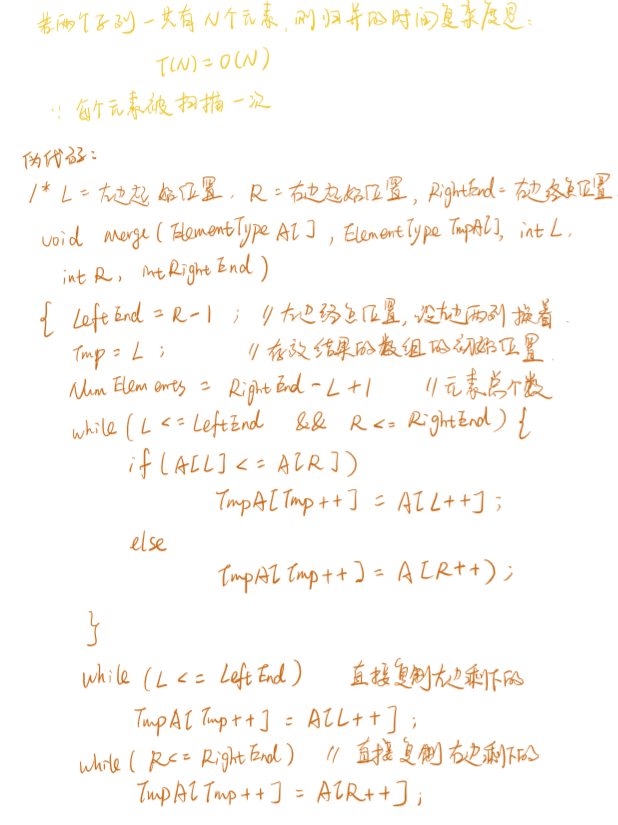 若两个子列一共有N个元素,则归并的时间复杂度是:
T(N)=O(N)
∵ 每个元素被扫描一次
伪代码:
/* L = 左边起始位置, R = 右边起始位置, RightEnd = 右边终点位置
void merge( ElementType A[ ] , ElementType TmpA[ ], int L,
int R, int RightEnd )
{ LeftEnd = R-1 ; // 左边终点位置,设左右两列挨着.
Tmp = L ; // 存放结果的数组的初始位置
Num Elements = RightEnd - L +1 // 元素总个数
while ( L <= LeftEnd && R <= RightEnd ) {
if ( A[L] <= A[R] )
TmpA[Tmp++] = A[L++] ;
else
TmpA[Tmp++] = A[R++) ;
}
while ( L <= LeftEnd ) 直接复制左边剩下的
TmpA[Tmp++] = A[L++] ;
while ( R<= RightEnd) // 直接复制右边剩下的
TmpA[Tmp++] = A[R++] ;